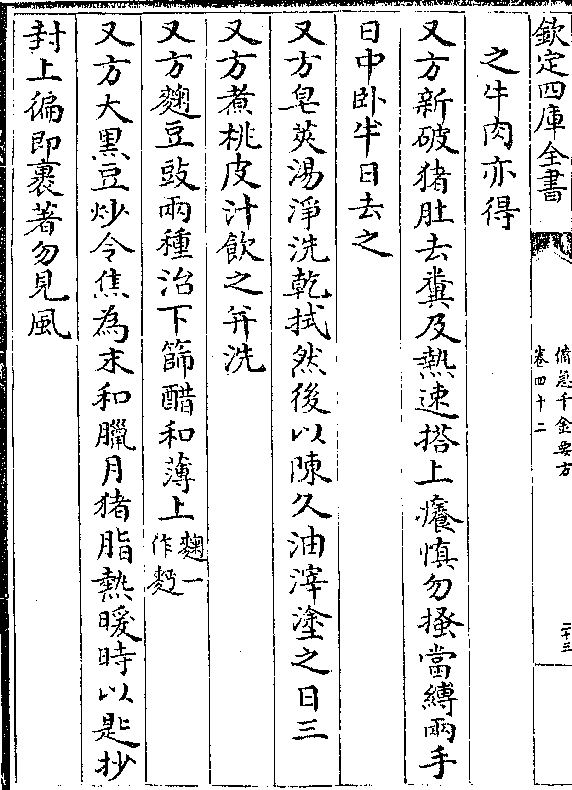 欽定四庫全書
備急千金要方
卷四十二
二十三
之牛肉亦得
又方新破猪肚去糞及熱速搭上癢慎勿搔當縛兩手
日中卧半日去之
又方皂莢湯淨洗乾拭然後以陳久油滓塗之日三
又方煮桃皮汁飲之并洗
又方麴豆豉兩種治下篩醋和薄上麴一作麪
又方大黑豆炒令焦為末和臘月猪脂熱暖時以匙抄
封上徧即裹著勿見風